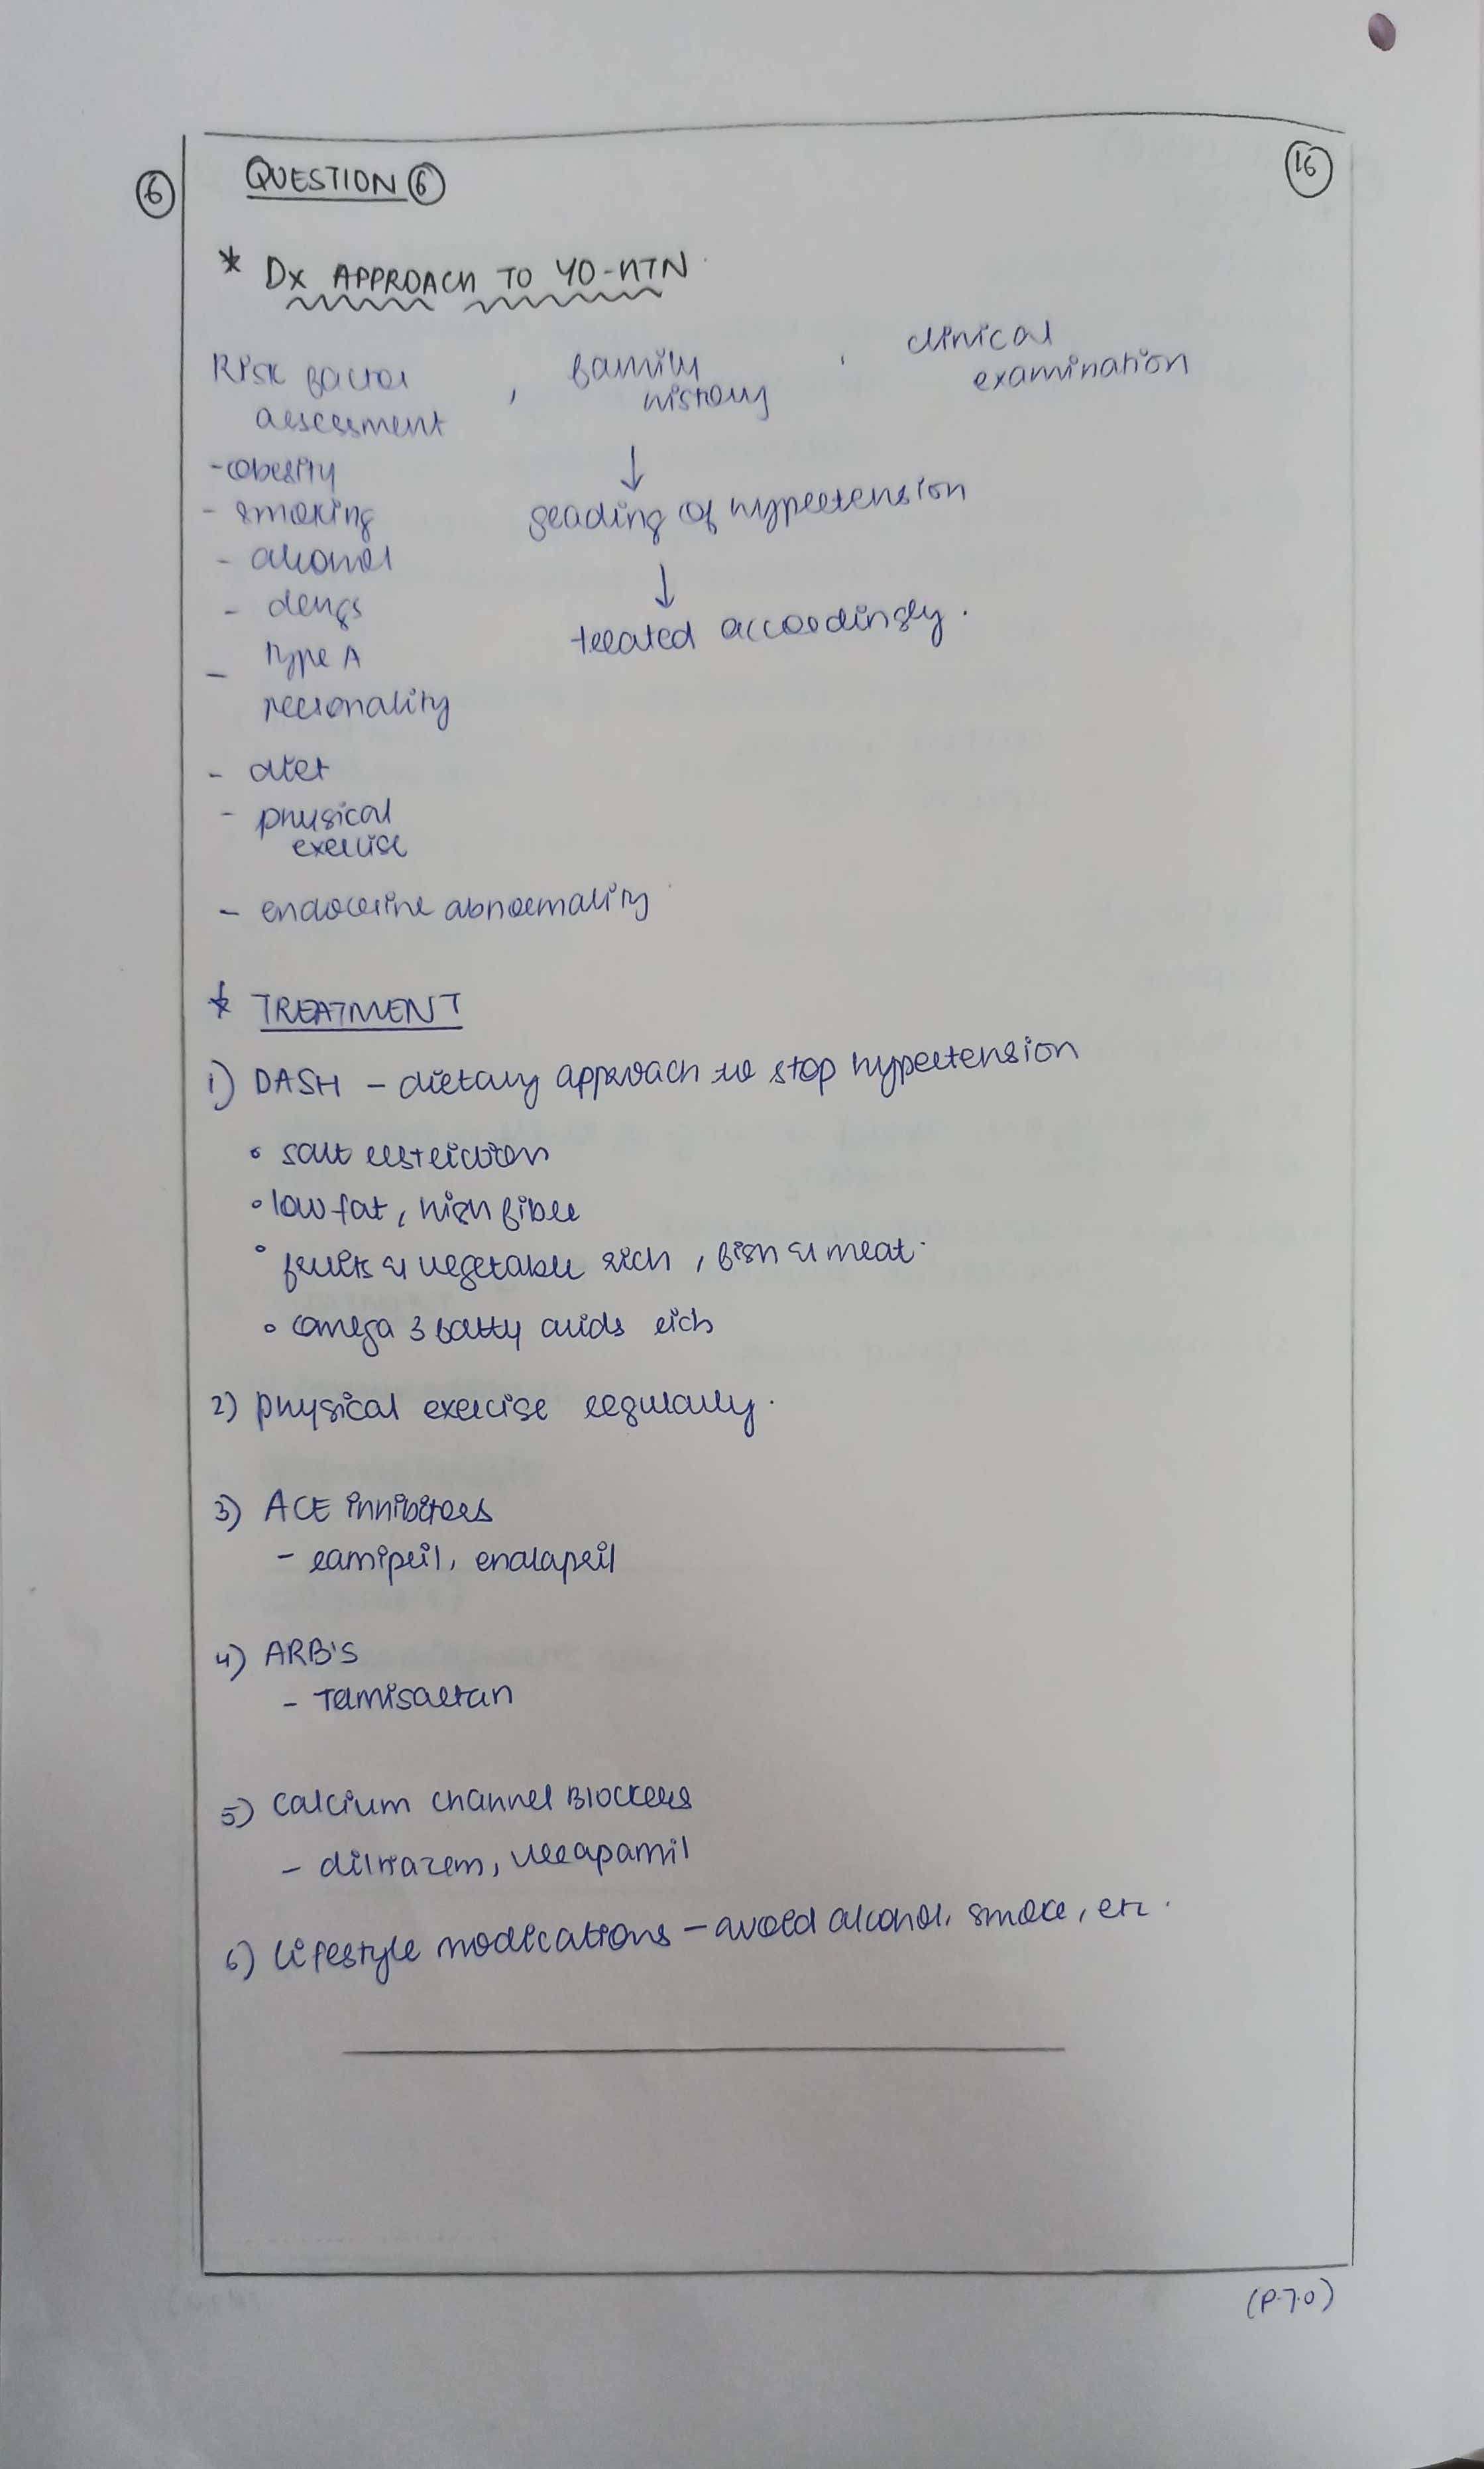 6
QUESTION 6
16
* Dx APPROACH TO YO-HTN.
Risk factor assessment , family history , clinical examination
- obesity
- smoking
- alcohol
- drugs
- type A personality
- diet
- physical exercise
- endocrine abnormality
↓
grading of hypertension
↓
treated accordingly.
* TREATMENT
1) DASH - dietary approach to stop hypertension
• salt restriction
• low fat, high fibre
• fruits & vegetable rich, fish & meat.
• omega 3 fatty acids rich
2) physical exercise regularly.
3) ACE inhibitors
- ramipril, enalapril
4) ARB'S
- Telmisartan
5) calcium channel Blockers
- diltiazem, verapamil
6) lifestyle modications - avoid alcohol, smoke, etc.
(P.T.O)